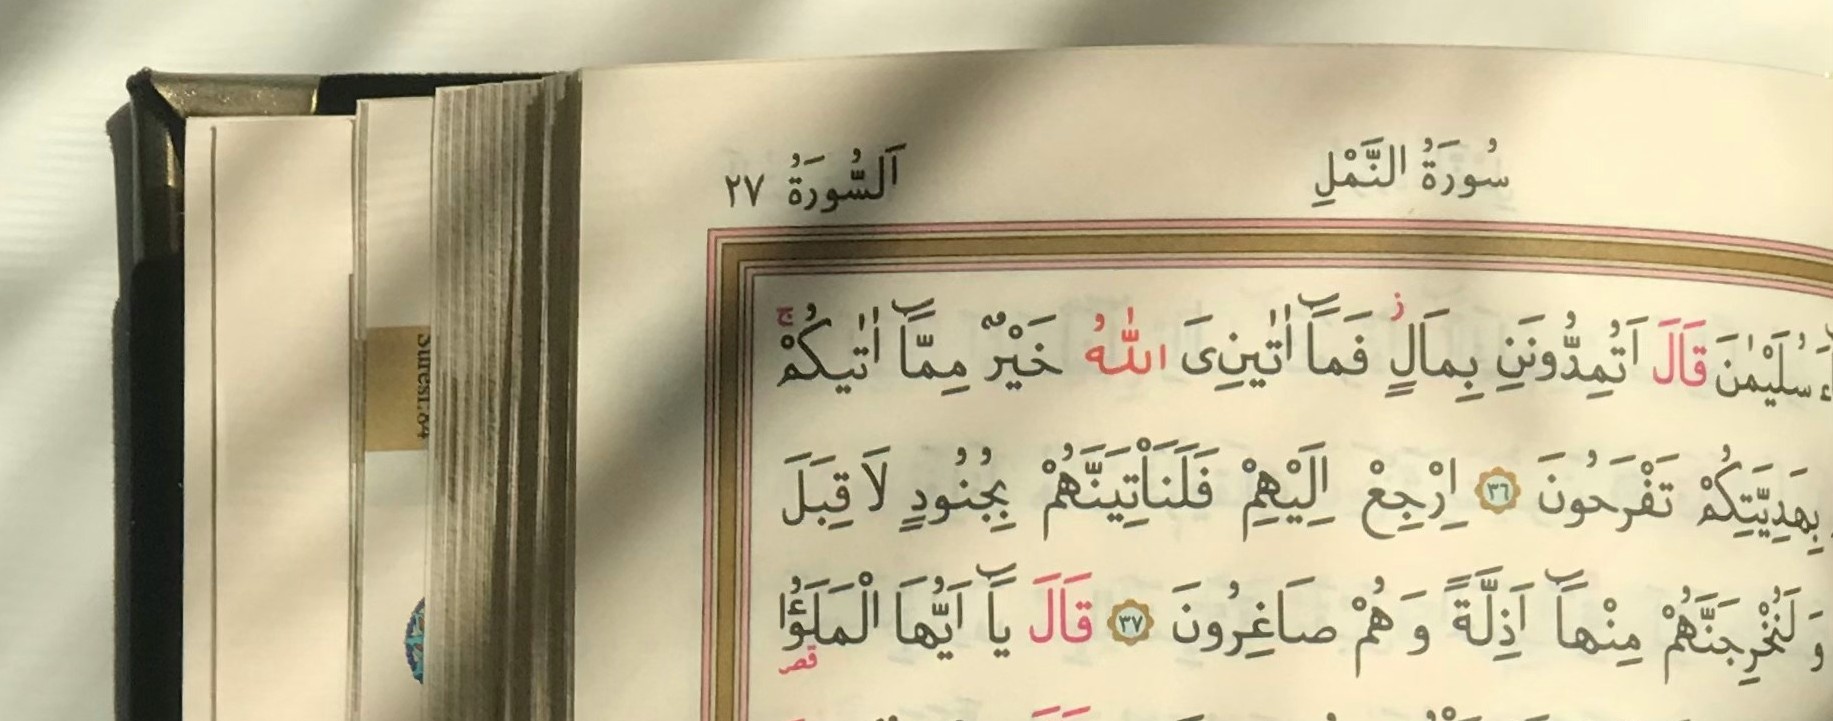 سُورَةُ النَّمْلِ
اَلسُّورَةُ ٢٧
سُلَيْمٰنَ قَالَ اَتُمِدُّونَنِ بِمَالٍ ز فَمَٓا اٰتٰينِۦَ اللّٰهُ خَيْرٌ مِمَّٓا اٰتٰيكُمْ ج
بِهَدِيَّتِكُمْ تَفْرَحُونَ ٣٦ اِرْجِعْ اِلَيْهِمْ فَلَنَأْتِيَنَّهُمْ بِجُنُودٍ لَا قِبَلَ
وَلَنُخْرِجَنَّهُمْ مِنْهَٓا اَذِلَّةً وَهُمْ صَاغِرُونَ ٣٧ قَالَ يَٓا اَيُّهَا الْمَلَؤُا
قص